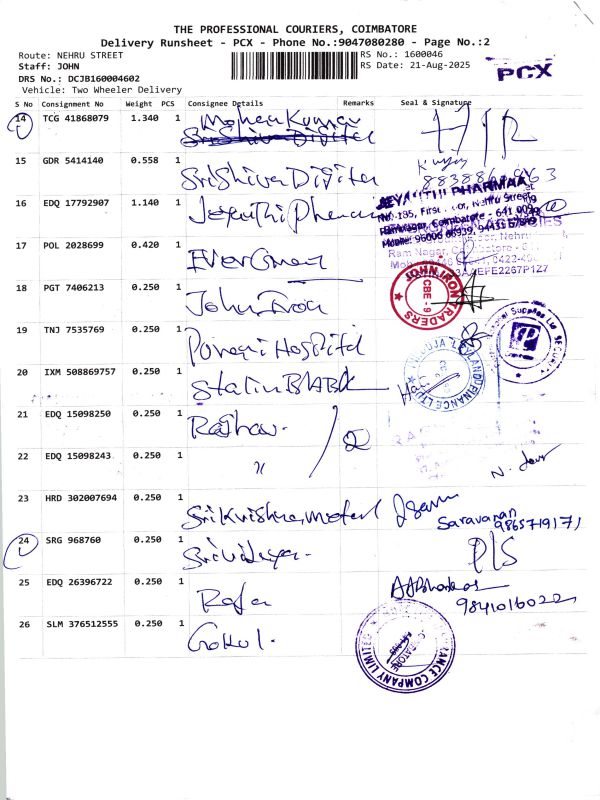 THE PROFESSIONAL COURIERS, COIMBATORE
Delivery Runsheet - PCX - Phone No.:9047080280 - Page No.:2
Route: NEHRU STREET
RS No.: 1600046
Staff: JOHN
RS Date: 21-Aug-2025
PCX
DRS No.: DCJB160004602
Vehicle: Two Wheeler Delivery
S No Consignment No Weight PCS Consignee Details Remarks Seal & Signature
14 TCG 41868079 1.340 1 Mohan Kumar
Sri Shiva Digital
15 GDR 5414140 0.558 1 Sri Shiva Digital
16 EDQ 17792907 1.140 1 Jeyanthi Pharma
JEYANTHI PHARMAA
No.135, First Floor, Nehru Street,
Ram Nagar, Coimbatore - 641 009
17 POL 2028699 0.420 1 Evergreen
18 PGT 7406213 0.250 1 John Iron
JOHN IRON TRADERS
CBE - 9
19 TNJ 7535769 0.250 1 Ponani Hospital
20 IXM 508869757 0.250 1 Stalin BABL
21 EDQ 15098250 0.250 1 Raghav
2
22 EDQ 15098243 0.250 1 "
23 HRD 302007694 0.250 1 Sri Krishna Motel
Saravanan
9865719171
24 SRG 968760 0.250 1 Srividhya
25 EDQ 26396722 0.250 1 Raja
9841016022
26 SLM 376512555 0.250 1 Gokul
COMPANY LIMITED